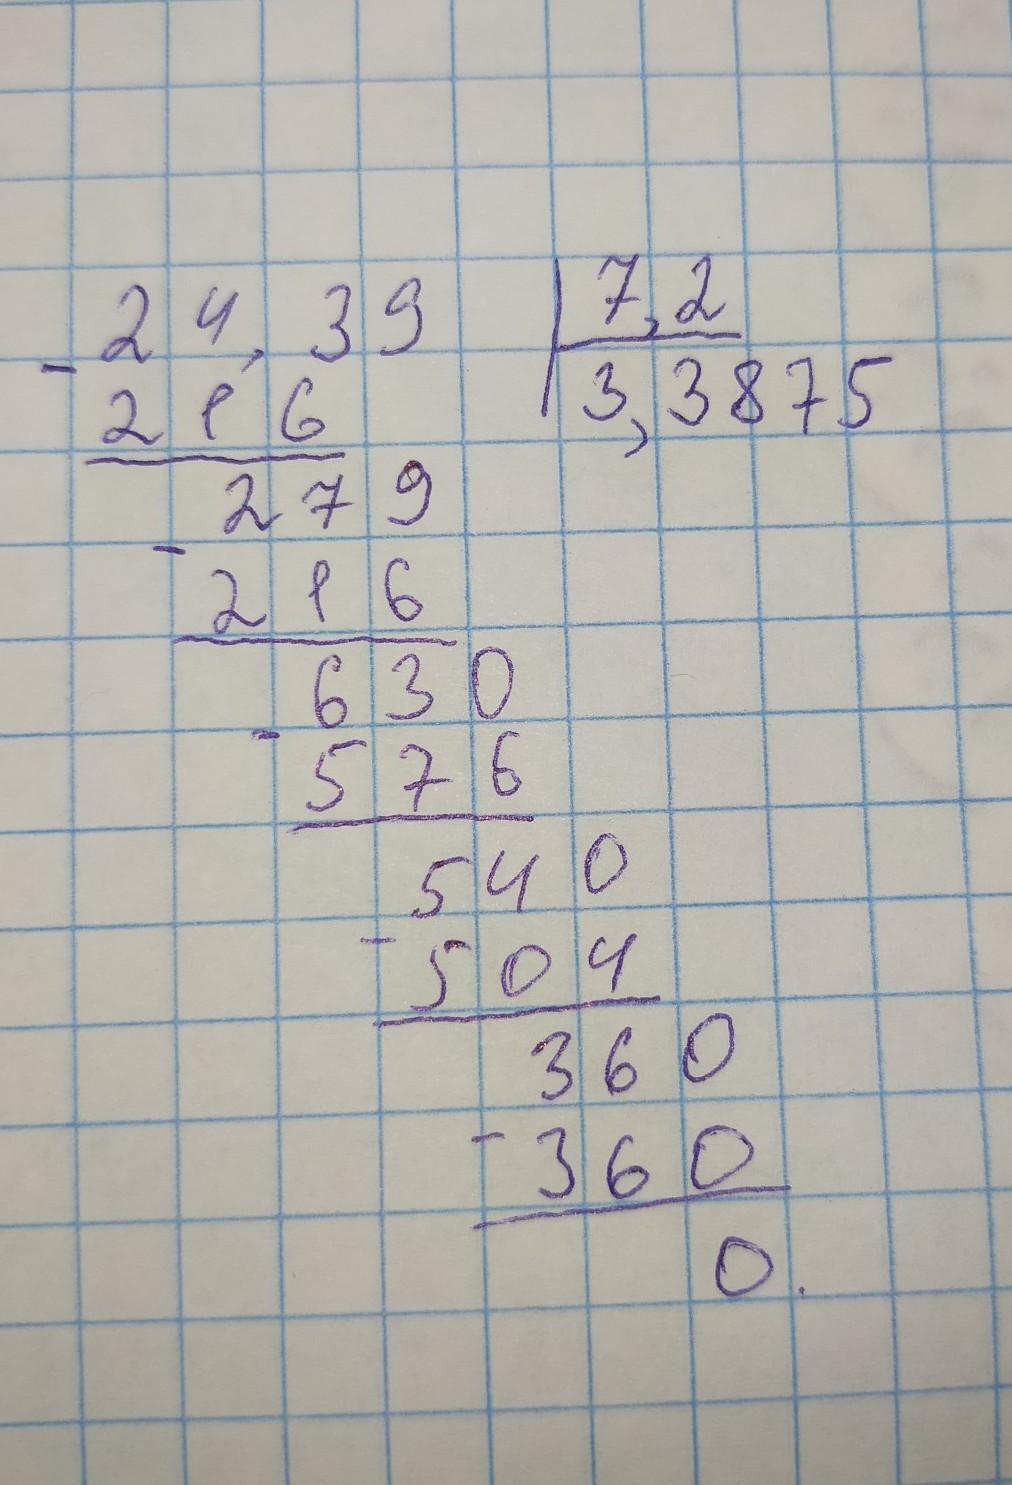 24,39 7,2
- 216 3,3875
279
- 216
630
- 576
540
- 504
360
- 360
0.